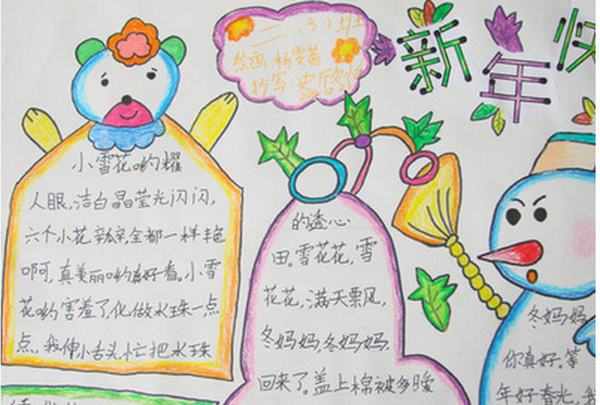 新年快
绘画
抄写
小雪花哟耀
人眼,洁白晶莹光闪闪,
六个小花瓣全都一样艳
啊呵,真美丽哟真好看。小雪
花哟害羞了,化做水珠一点
点,我伸小舌头忙把水珠
的透心
田。雪花花,雪
花花,满天飘风,
冬妈妈,冬妈妈.
回来了。盖上棉被多暖
冬妈妈
你真好。等
年好春光,我